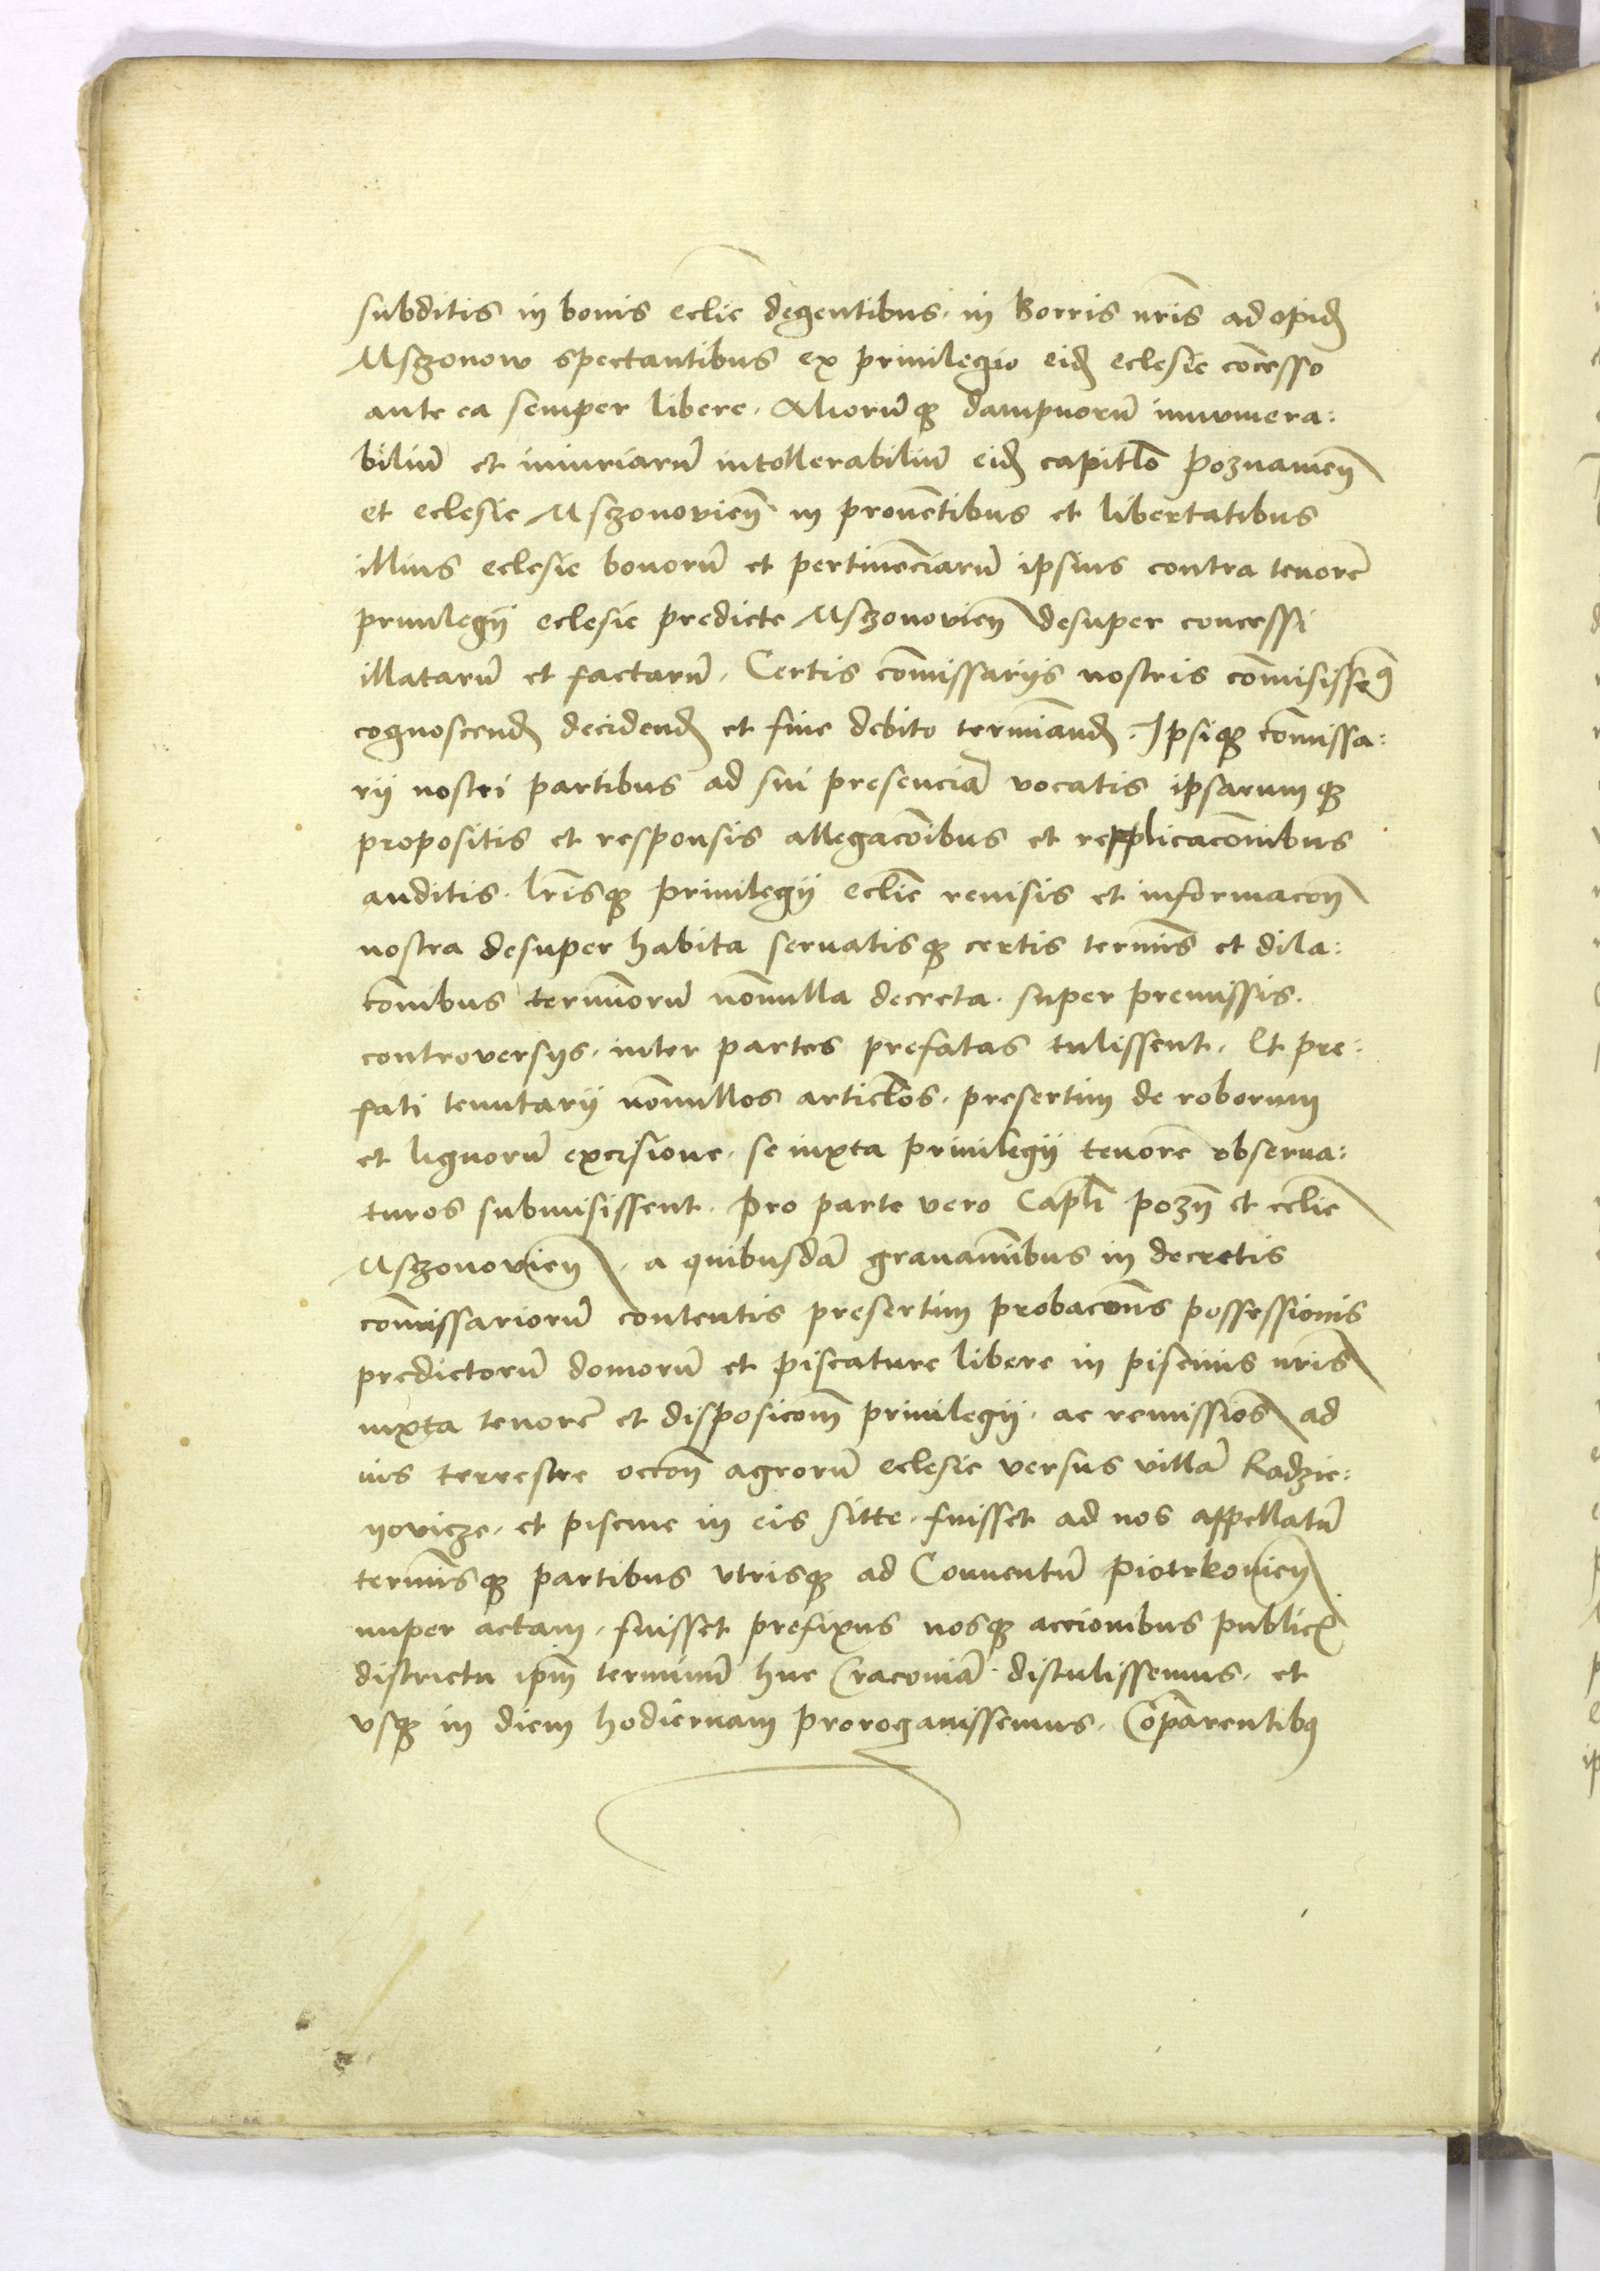 subditis in bonis eclie degentibus. in Borris nris ad opid
Msczonow spectantibus ex privilegio eid eclesie concesso
ante ea semper libere. Aliorumq dampnorum innumera:
bilium et iniuriarum intollerabilium eid capitlo Poznanien
et eclesie Msczonovien in proventibus et libertatibus
illius eclesie bonorum et pertinenciarum ipsius contra tenore
privilegii eclesie predicte Msczonovien desuper concessi
illatarum et factarum. Certis comissariis nostris comisissemus
cognoscend decidend et fine debito terminand. Ipsiq comissa:
rii nostri partibus ad sui presenciam vocatis ipsarumq
propositis et responsis allegaconibus et replicaconibus
auditis. lrisq privilegii eclie revisis et informacon
nostra desuper habita servatisq certis terminis et dila:
conibus terminorum nonnulla decreta. super premissis.
controversiis. inter partes prefatas tulissent. Et pre:
fati tenutarii nonnullos articlos. presertim de roborum
et lignorum excisione. se iuxta privilegii tenore observa:
turos submisissent. Pro parte vero Capli pozn et eclie
Msczonovien. a quibusdam gravaminibus in decretis
comissariorum contentis presertim probaconis possessionis
predictorum domorum et piscature libere in piscinis nris
iuxta tenore et disposicom privilegii. ac remissios ad
ius terrestre occon agrorum eclesie versus villam Radzie:
yovicze. et piscine in eis sitte. fuisset ad nos appellatum
terminusq partibus utrisq ad Conventum Piotrkovien
nuper actam. fuisset prefixus nosq accionibus public
districtu ipm terminum huc Cracoviam distulissemus. et
usq in diem hodiernam prorogavissemus. Comparentibus